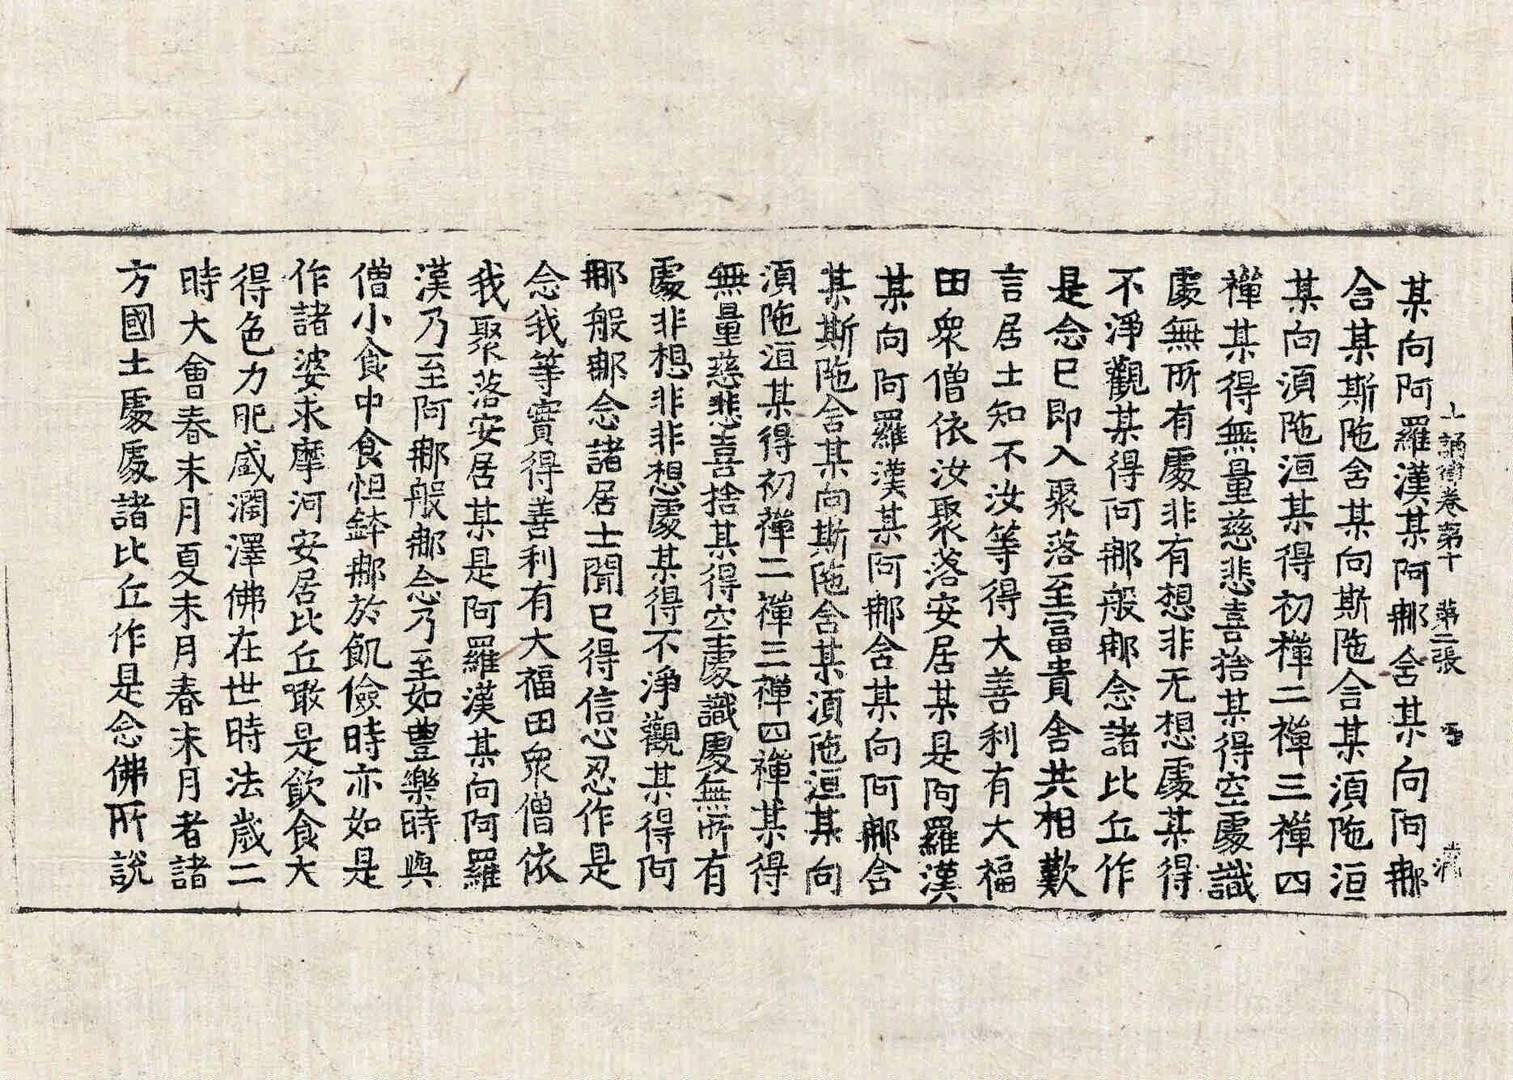 十誦律卷第十 第二張
某向阿羅漢某阿那含某向阿那
含某斯陁含某向斯陁含某須陁洹
某向須陁洹某得初禪二禪三禪四
禪某得無量慈悲喜捨某得空處識
處無所有處非有想非无想處某得
不淨觀某得阿那般那念諸比丘作
是念已即入聚落至富貴舍共相歎
言居士知不汝等得大善利有大福
田衆僧依汝聚落安居某是阿羅漢
某向阿羅漢某阿那含某向阿那含
某斯陁含某向斯陁含某須陁洹某向
須陁洹某得初禪二禪三禪四禪某得
無量慈悲喜捨某得空處識處無所有
處非想非非想處某得不淨觀某得阿
那般那念諸居士聞已得信心忍作是
念我等實得善利有大福田衆僧依
我聚落安居某是阿羅漢某向阿羅
漢乃至阿那般那念乃至如豊樂時與
僧小食中食怛鉢那於飢儉時亦如是
作諸婆求摩河安居比丘噉是飲食大
得色力肥盛潤澤佛在世時法歲二
時大會春末月夏末月春末月者諸
方國土處處諸比丘作是念佛所說